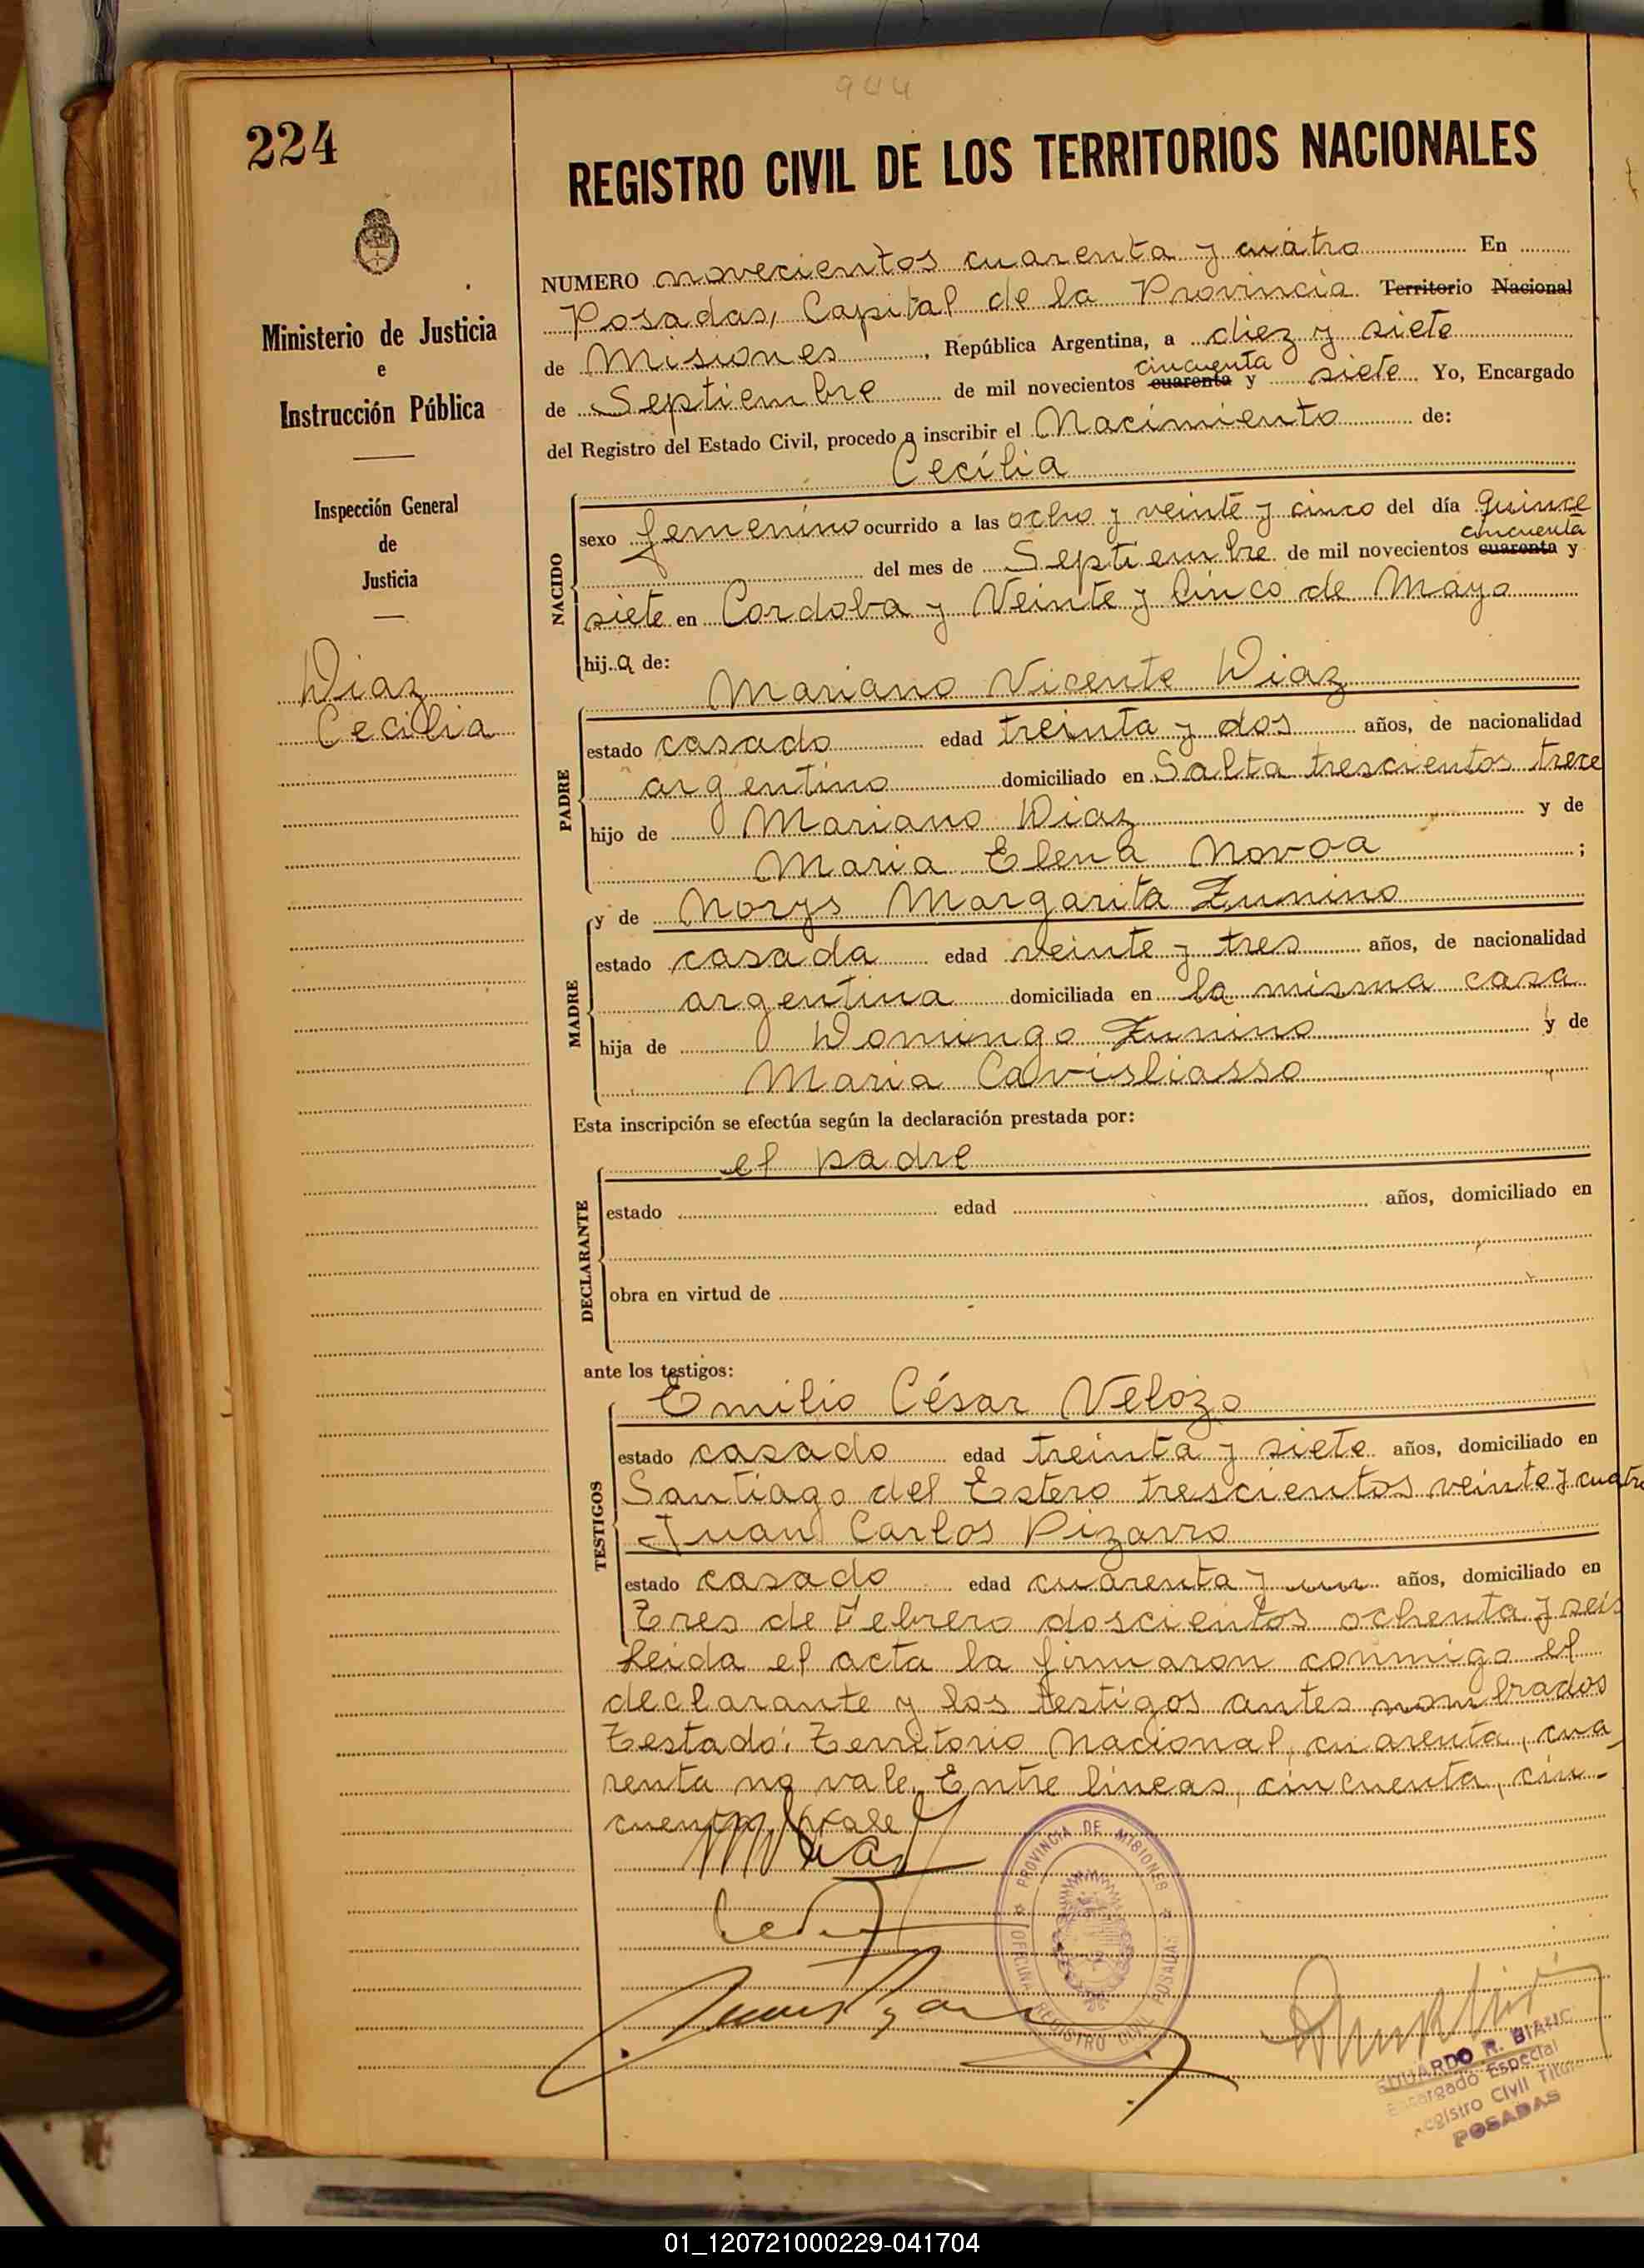 944
224
REGISTRO CIVIL DE LOS TERRITORIOS NACIONALES
NUMERO novecientos cuarenta y cuatro En
Posadas, Capital de la Provincia Territorio Nacional
de Misiones, República Argentina, a diez y siete
cincuenta
de Septiembre de mil novecientos cuarenta y siete Yo, Encargado
del Registro del Estado Civil, procedo a inscribir el Nacimiento de:
Ministerio de Justicia
e
Instrucción Pública
Inspección General
de
Justicia
Diaz
Cecilia
NACIDO
Cecilia
sexo femenino ocurrido a las ocho y veinte y cinco del día quince
cincuenta
del mes de Septiembre de mil novecientos cuarenta y
siete en Cordoba y Veinte y Cinco de Mayo
hija de:
PADRE
Mariano Vicente Diaz
estado casado edad treinta y dos años, de nacionalidad
argentino domiciliado en Salta trescientos trece
hijo de Mariano Diaz y de
Maria Elena Novoa;
MADRE
y de Norys Margarita Zunino
estado casada edad veinte y tres años, de nacionalidad
argentina domiciliada en la misma casa
hija de Domingo Zunino y de
Maria Cavisliasso
Esta inscripción se efectúa según la declaración prestada por:
DECLARANTE
el padre
estado edad años, domiciliado en
obra en virtud de
ante los testigos:
TESTIGOS
Emilio César Velozo
estado casado edad treinta y siete años, domiciliado en
Santiago del Estero trescientos veinte y cuatro
Juan Carlos Pizarro
estado casado edad cuarenta y un años, domiciliado en
Tres de Febrero doscientos ochenta y seis
Leida el acta la firmaron conmigo el
declarante y los testigos antes nombrados
Testado: Territorio Nacional, cuarenta, cua
renta no vale. Entre lineas, cincuenta, cin-
cuenta, vale
PROVINCIA DE MISIONES
OFICINA REGISTRO CIVIL POSADAS
EDUARDO R. BIANC
Encargado Especial
Registro Civil Titu
POSADAS
01_120721000229-041704